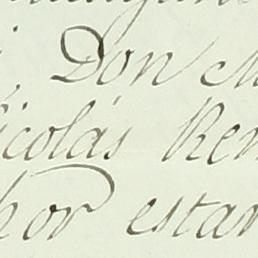 Don M
icolás Ren
por estar